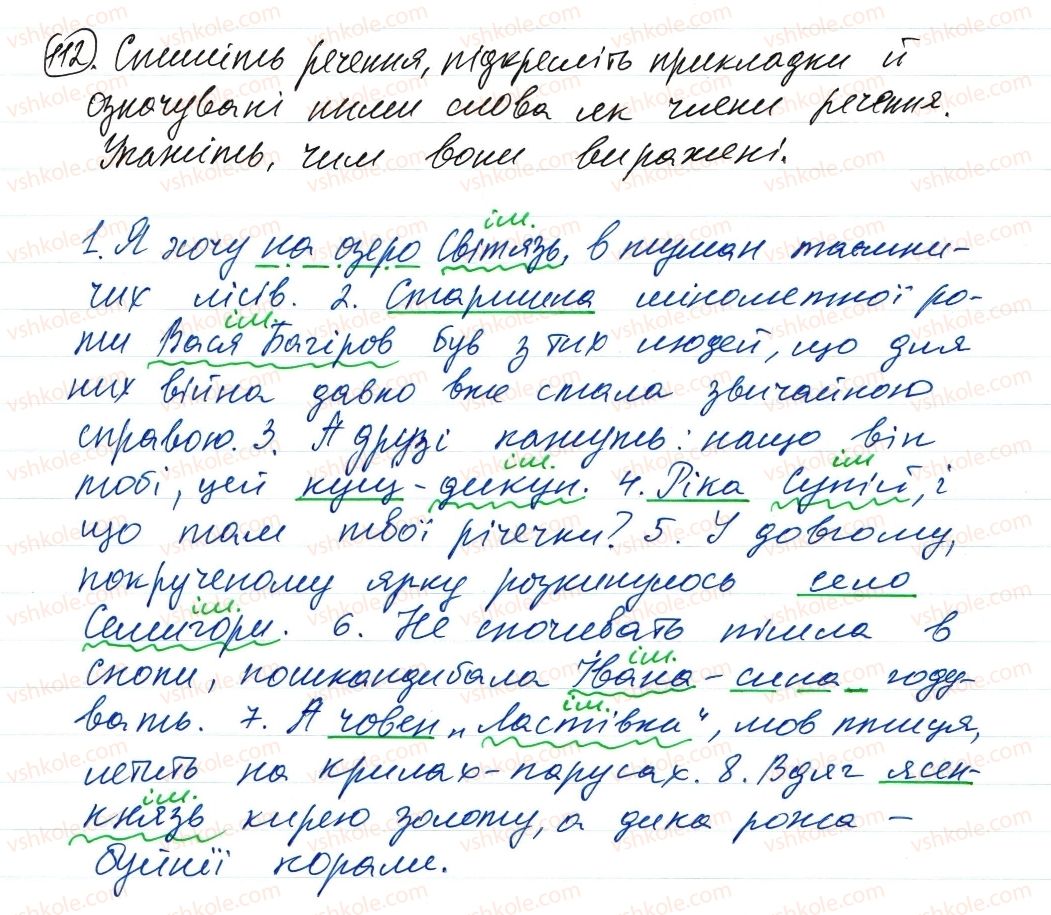 112. Спишіть речення, підкресліть прикладки й
означувані ними слова як члени речення.
Укажіть, чим вони виражені.
ім.
1. Я хочу на озеро Світязь, в туман таємни-
чих лісів. 2. Старшина мінометної ро-
ім.
ти Вася Багіров був з тих людей, що для
них війна давно вже стала звичайною
справою. 3. А друзі кажуть: нащо він
ім. ім
тобі, цей кущ-дикун. 4. Ріка Супій, і
що там твої річечки? 5. У довгому,
покрученому ярку розкинулось село
ім.
Семигори. 6. Не спочивать пішла в
ім.
снопи, пошкандибала Івана-сина году-
ім.
вать. 7. А човен „Ластівка", мов птиця,
летить на крилах-парусах. 8. Вдяг ясен-
ім.
князь кирею золоту, а дика рожа -
буйнії корали.